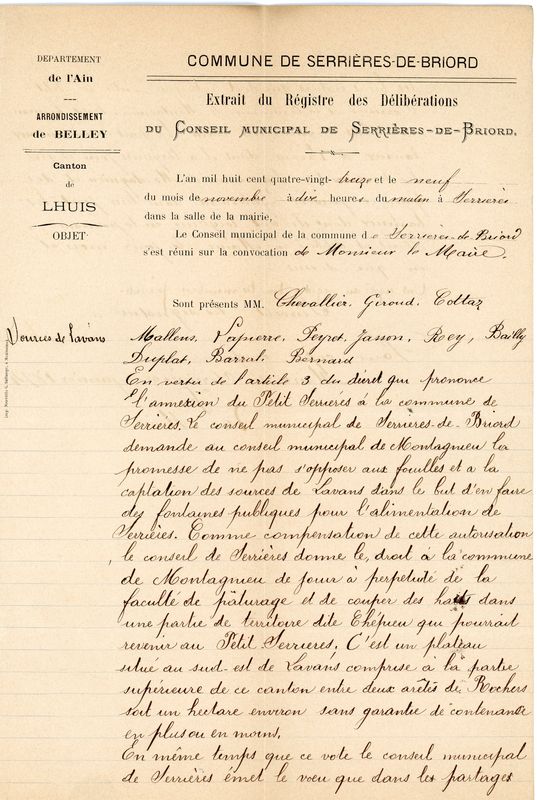 DÉPARTEMENT
de l'Ain
ARRONDISSEMENT
de BELLEY
Canton
de
LHUIS
OBJET
Sources de Lavans
COMMUNE DE SERRIÈRES-DE-BRIORD
Extrait du Régistre des Délibérations
DU CONSEIL MUNICIPAL DE SERRIÈRES-DE-BRIORD.
L'an mil huit cent quatre-vingt-treize et le neuf
du mois de novembre à dix heures du matin à Serrières
dans la salle de la mairie,
Le Conseil municipal de la commune de Serrières-de-Briord
s'est réuni sur la convocation de Monsieur le Maire.
Sont présents MM. Chevallier, Giroud, Cottaz
Mallens, Lapierre, Peyret, Jasson, Rey, Bailly
Duplat, Barral, Bernard
En vertu de l'article 3 du décret qui prononce
l'annexion du Petit Serrieres à la commune de
Serrières. Le conseil municipal de Serrieres-de-Briord
demande au conseil municipal de Montagnieu la
promesse de ne pas s'opposer aux fouilles et a la
captation des sources de Lavans dans le but d'en faire
des fontaines publiques pour l'alimentation de
Serrières. Comme compensation de cette autorisation
le conseil de Serrières donne le droit à la commune
de Montagnieu de jouir à perpetuité de la
faculté de pâturage et de couper des dans
une partie de territoire dite qui pourrait
revenir au Petit Serrieres. C'est un plateau
situé au sud-est de Lavans comprise à la partie
supérieure de ce canton entre deux arêtes de Rochers
soit un hectare environ sans garantie de contenance
en plus ou en moins.
En même temps que ce vote le conseil municipal
de Serrières émet le voeu que dans les partages